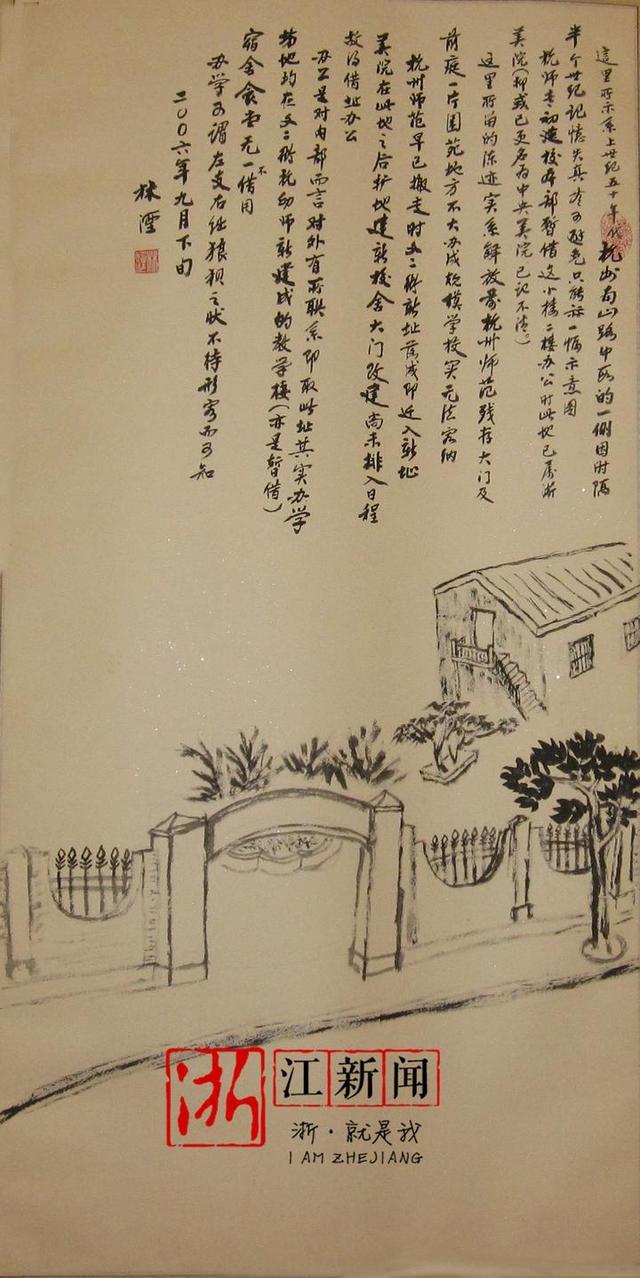 這里所示系上世纪五十年代杭州南山路中段的一侧因时隔
半个世纪记憶失真在所避免只能示一幅示意图
杭师专初建校本部暂借这小楼二楼办公时此地已属浙
美院(抑或已更名为中央美院已记不清。)
这里所留的陈迹实系解放前杭州师范残存大门及
前庭一片园苑地方不大办成规模学校实无法容纳
杭州师范早已搬走时文二街新址落成即迁入新址
美院在此地之后扩地建新校舍大门改建尚未排入日程
故得借址办公
办公是对内部而言对外有所联系即取此址其实办学
场地均在文二街杭幼师新建成的教学楼(亦是暂借)
宿舍食堂无一不借用
办学可谓左支右绌狼狈之状不待形容而可知
二〇〇六年九月下旬
林澐
浙
江新闻
浙·就是我
I AM ZHEJIANG